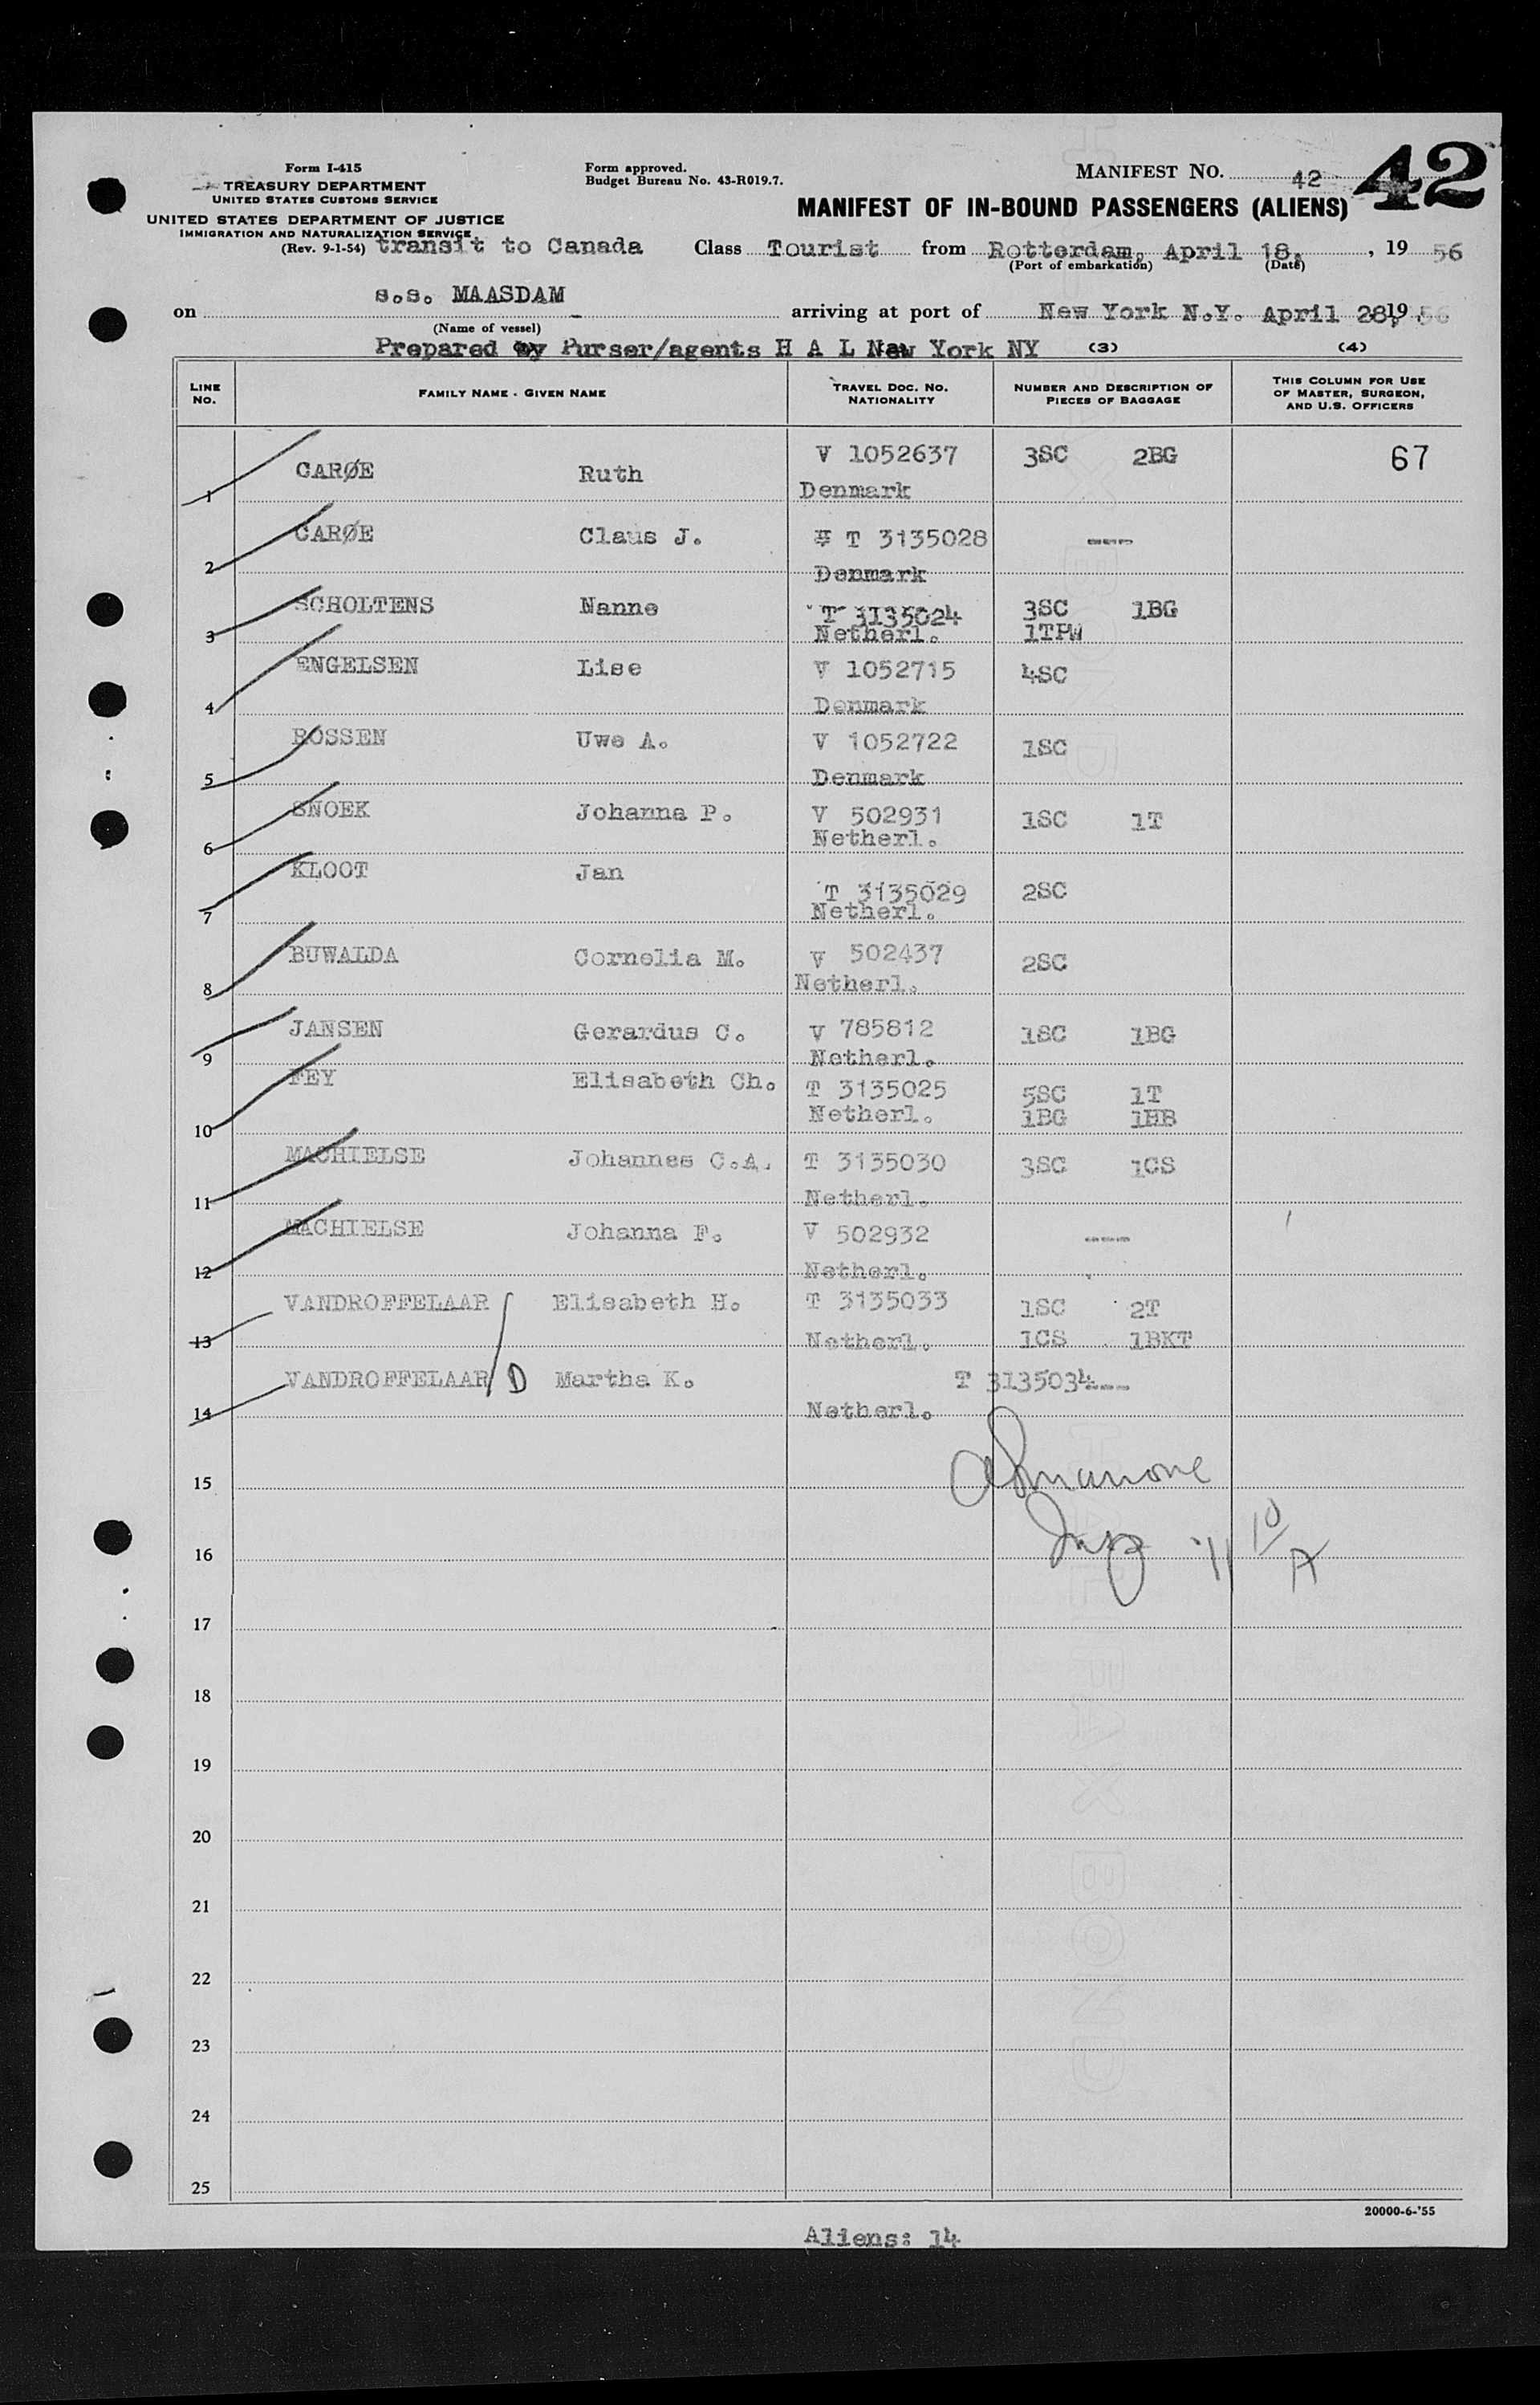 Form I-415
TREASURY DEPARTMENT
UNITED STATES CUSTOMS SERVICE
UNITED STATES DEPARTMENT OF JUSTICE
IMMIGRATION AND NATURALIZATION SERVICE
(Rev. 9-1-54)
Form approved.
Budget Bureau No. 43-R019.7.
MANIFEST NO. 42
42
MANIFEST OF IN-BOUND PASSENGERS (ALIENS)
transit to Canada Class Tourist from Rotterdam, April 18, , 19 56
(Port of embarkation) (Date)
on s.s. MAASDAM arriving at port of New York N.Y. April 28, 19 56
(Name of vessel)
Prepared by Purser/agents H A L New York NY (3) (4)
LINE NO. FAMILY NAME - GIVEN NAME TRAVEL DOC. NO. NATIONALITY NUMBER AND DESCRIPTION OF PIECES OF BAGGAGE THIS COLUMN FOR USE OF MASTER, SURGEON, AND U.S. OFFICERS
1 CARØE Ruth V 1052637 3SC 2BG 67
Denmark
2 CARØE Claus J. T 3135028 ---
Denmark
3 SCHOLTENS Nanne T 3135024 3SC 1BG
Netherl. 1TPW
4 ENGELSEN Lise V 1052715 4SC
Denmark
5 ROSSEN Uwe A. V 1052722 1SC
Denmark
6 SNOEK Johanna P. V 502931 1SC 1T
Netherl.
7 KLOOT Jan T 3135029 2SC
Netherl.
8 BUWALDA Cornelia M. V 502437 2SC
Netherl.
9 JANSEN Gerardus C. V 785812 1SC 1BG
Netherl.
10 FEY Elisabeth Ch. T 3135025 5SC 1T
Netherl. 1BG 1HB
11 MACHIELSE Johannes C.A. T 3135030 3SC 1CS
Netherl.
12 MACHIELSE Johanna F. V 502932 ---
Netherl.
13 VANDROFFELAAR Elisabeth H. T 3135033 1SC 2T
Netherl. 1CS 1BKT
14 VANDROFFELAAR / D Martha K. T 3135034---
Netherl.
15
16
17
18
19
20
21
22
23
24
25
20000-6-'55
Aliens: 14